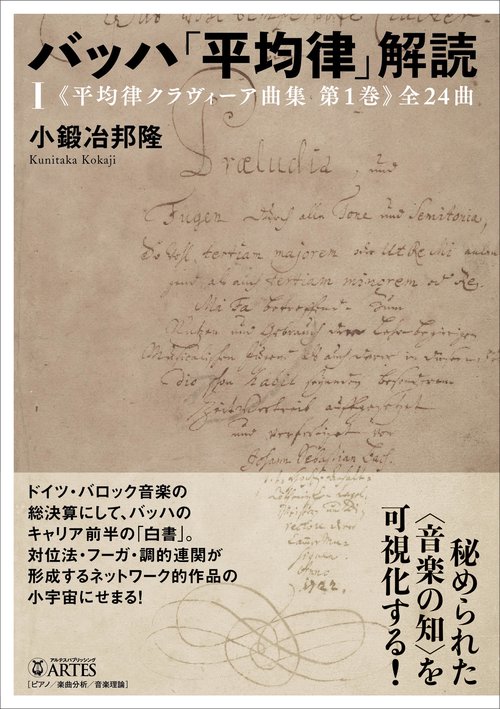 バッハ「平均律」解読
I《平均律クラヴィーア曲集 第1巻》全24曲
小鍛冶邦隆
Kunitaka Kokaji
Præludia, und
Fugen durch alle Tone und Semitonia,
tertiam majorem oder Ut Re Mi
tertiam minorem od Re
Mi Fa betreffend. Zum
Nutzen und Gebrauch der Lehrbegierigen
Musicalischen Jugend als auch derer in diesem
dio schon habil seyenden besonderem
Zeitvertreib auffgesetzet
und verfertiget von
Johann Sebastian Bach.
Anno
1722
秘められた
〈音楽の知〉を
可視化する!
ドイツ・バロック音楽の
総決算にして、バッハの
キャリア前半の「白書」。
対位法・フーガ・調的連関が
形成するネットワーク的作品の
小宇宙にせまる!
アルテスパブリッシング
ARTES
[ピアノ/楽曲分析/音楽理論]